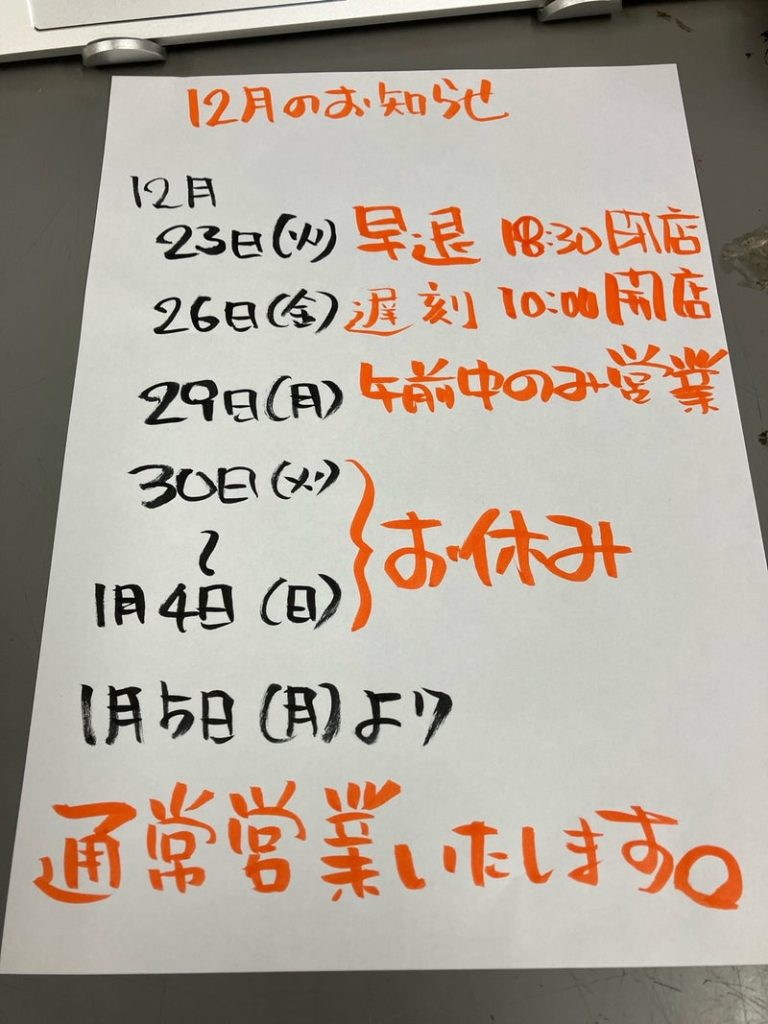 12月のお知らせ
12月
23日(火) 早退 18:30閉店
26日(金) 遅刻 10:00開店
29日(月) 午前中のみ営業
30日(火)
〜
1月4日(日)
お休み
1月5日(月)より
通常営業いたします。